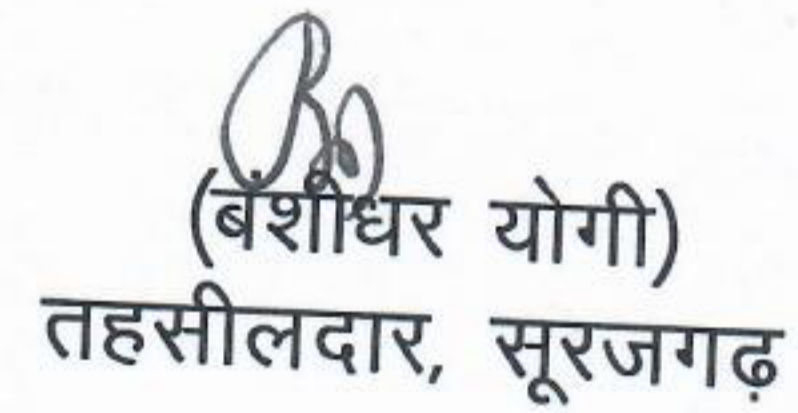 (बंशीधर योगी)
तहसीलदार, सूरजगढ़